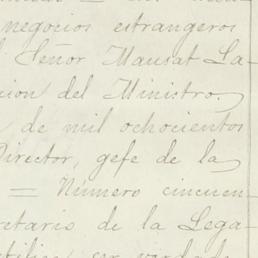 negocios estrangeros
Señor Mausat La-
cion del Ministro.
de mil ochocientos
Director, gefe de la
= Número cincuen
cretario de la Lega